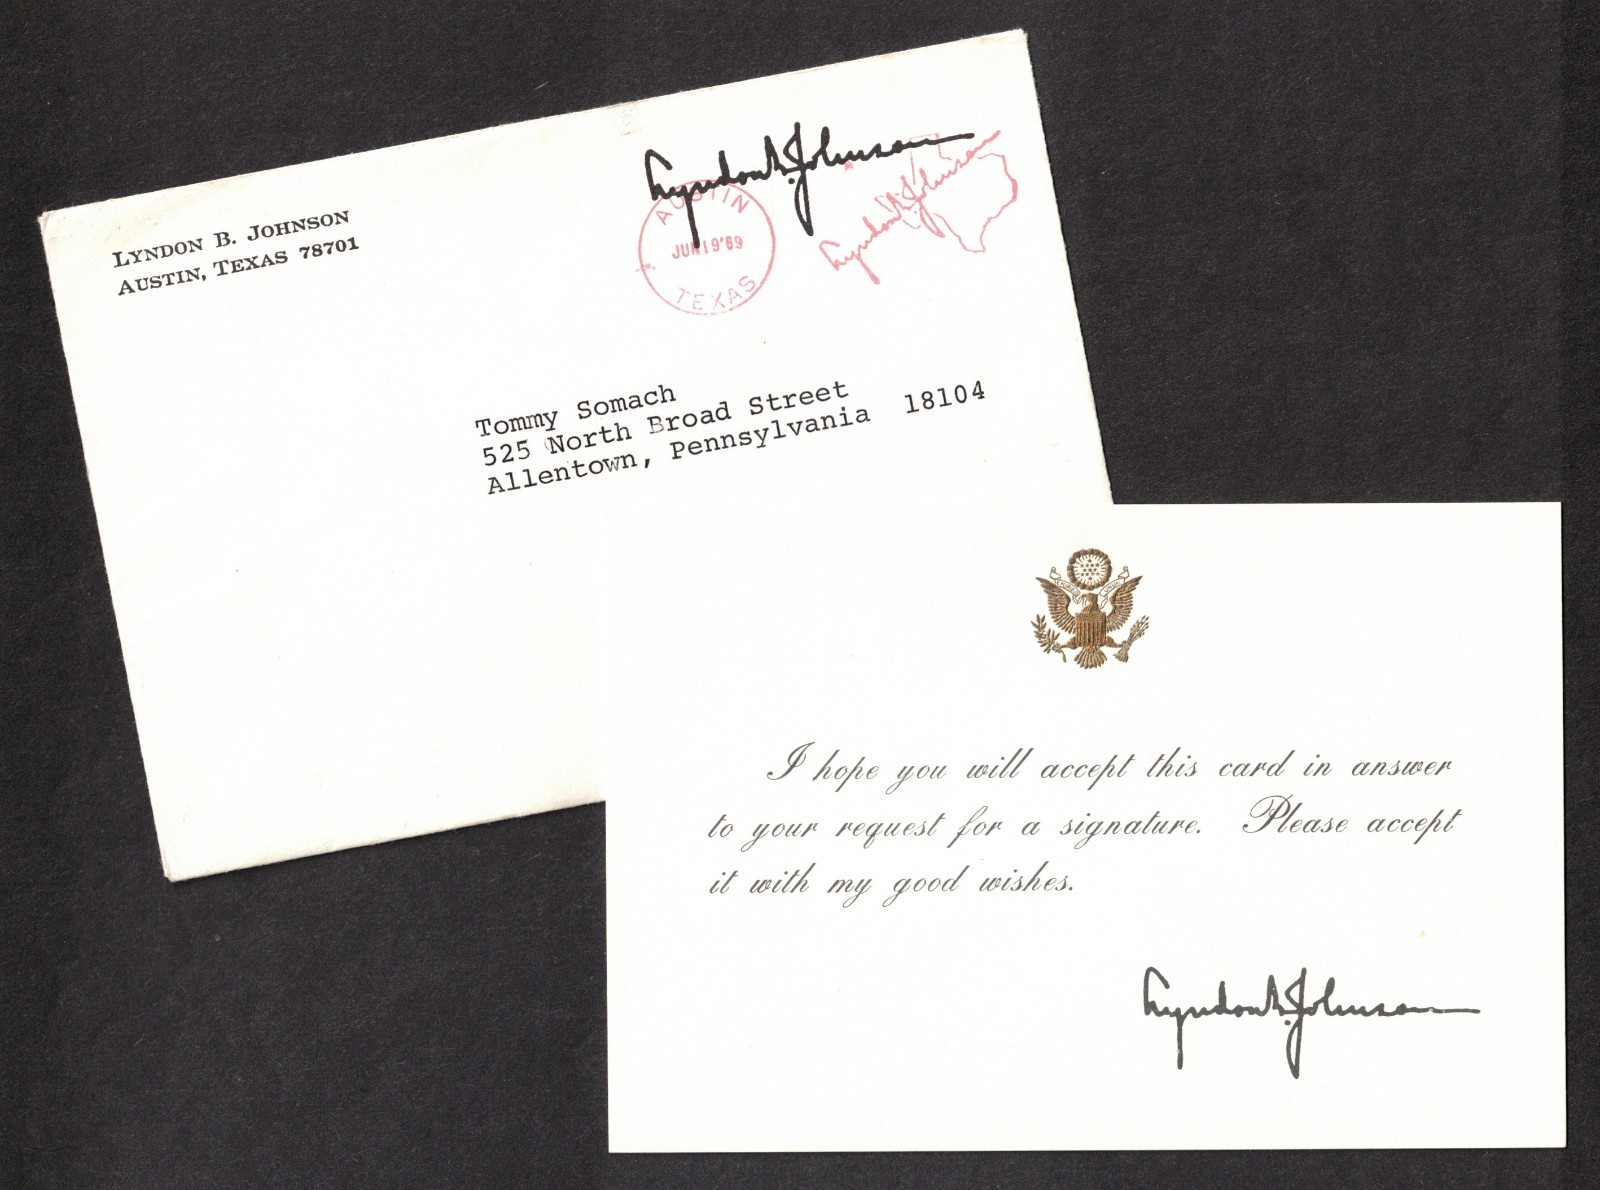 LYNDON B. JOHNSON
AUSTIN, TEXAS 78701
Lyndon B. Johnson
AUSTIN
JUN 19 '69
TEXAS
Lyndon B. Johnson
Tommy Somach
525 North Broad Street
Allentown, Pennsylvania 18104
I hope you will accept this card in answer
to your request for a signature. Please accept
it with my good wishes.
Lyndon B. Johnson